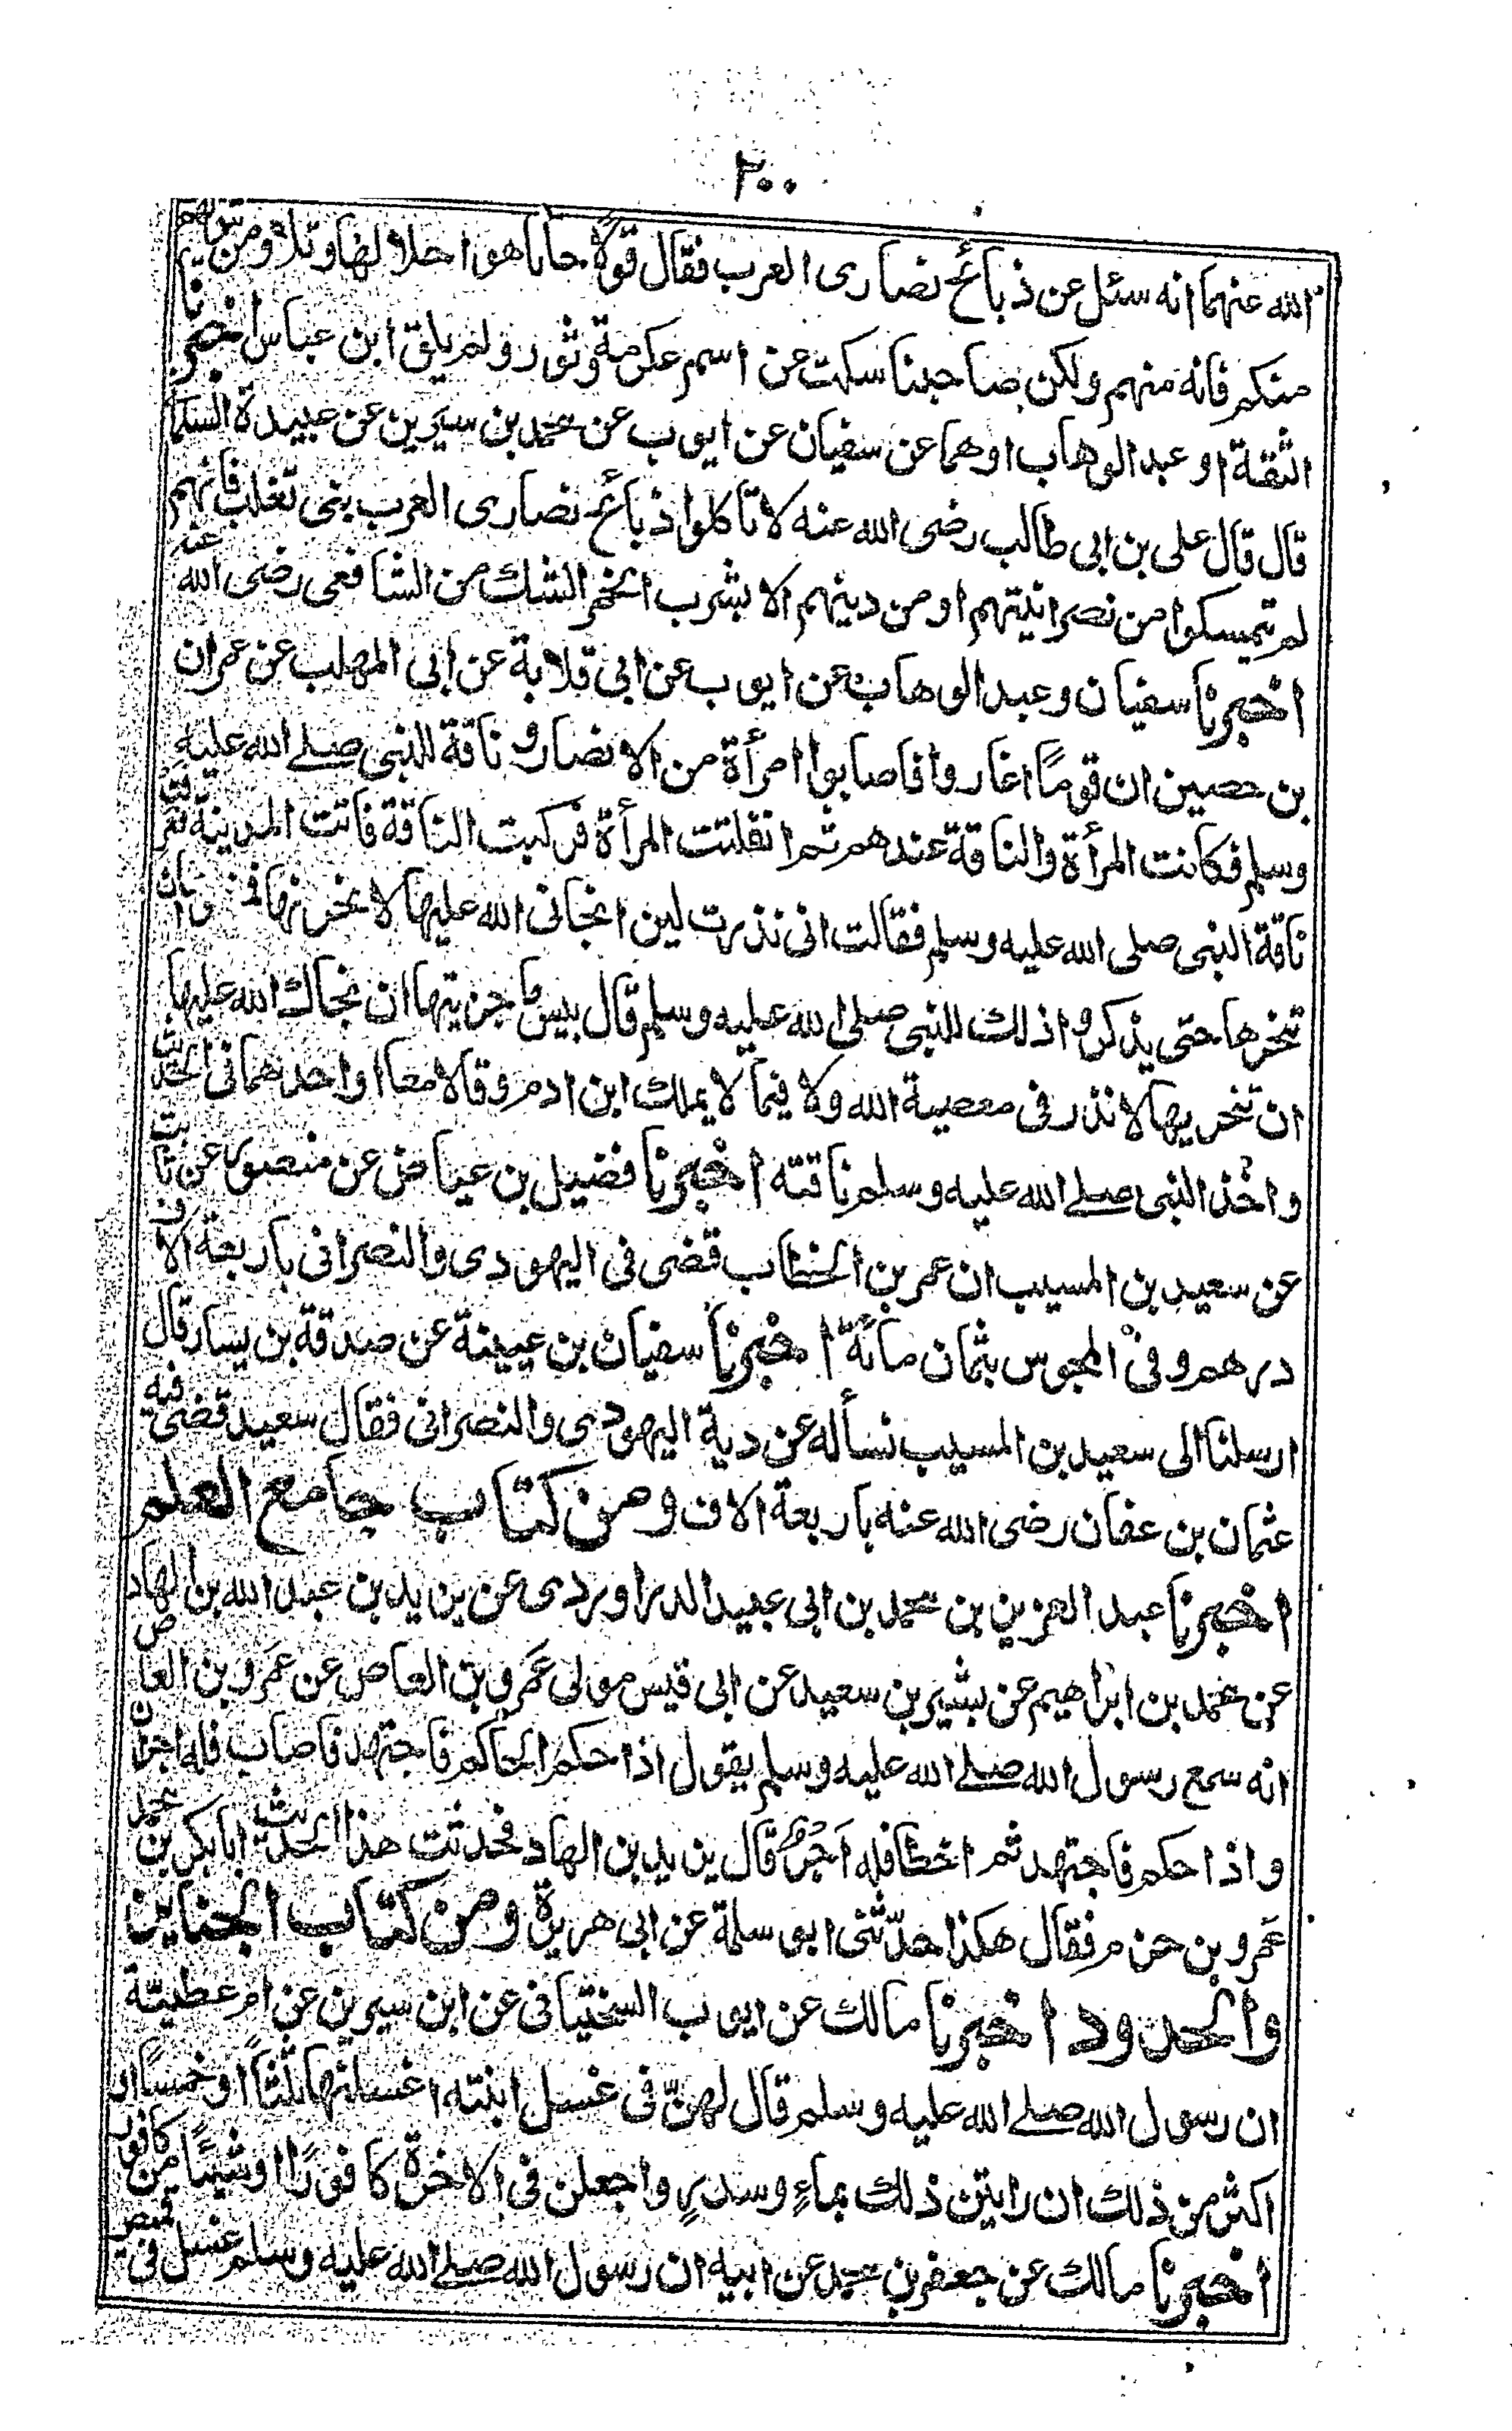 ٢٠٠
الله عنهما انه سئل عن ذبائح نصارى العرب فقال قولا حكاه هو احلالها وتلا ومن يتولهم
منكم فانه منهم ولكن صاحبنا سكت عن اسم عكرمة وثور ولم يلق ابن عباس اخبرنا
الثقة او عبد الوهاب او هما عن سفيان عن ايوب عن محمد بن سيرين عن عبيدة السلمانى
قال قال على بن ابى طالب رضى الله عنه لا تاكلوا ذبائح نصارى العرب بنى تغلب فانهم
لم تمسكوا من نصرانيتهم او من دينهم الا بشرب الخمر الشك من الشافعى رضى الله عنه
اخبرنا سفيان وعبد الوهاب عن ايوب عن ابى قلابة عن ابى المهلب عن عمران
بن حصين ان قومًا اغاروا فاصابوا امرأة من الانصار و ناقة للنبى صلے الله عليه
وسلم فكانت المرأة والناقة عندهم ثم انفلتت المرأة فركبت الناقة فاتت المدينة فعرفت
ناقة النبى صلى الله عليه وسلم فقالت انى نذرت لين انجانى الله عليها لانحرنها وان
تنحرها حتى يذكروا ذلك للنبى صلى الله عليه وسلم قال بيس ما جزيتها ان نجاك الله عليها
ان تنحريها لا نذر فى معصية الله ولا فيما لا يملك ابن ادم وقالا معا او احدهما فى الحديث
واخذ النبى صلے الله عليه وسلم ناقته اخبرنا فضيل بن عياض عن منصور عن ثابت
عن سعيد بن المسيب ان عمر بن الخطاب قضى فى اليهودى والنصرانى باربعة الاف
درهم وفى المجوس بثمان مائة اخبرنا سفيان بن عيينة عن صدقة بن يسار قال
ارسلنا الى سعيد بن المسيب نسأله عن دية اليهودى والنصرانى فقال سعيد قضى فيه
عثمان بن عفان رضى الله عنه باربعة الاف ومن كتاب جامع العلم
اخبرنا عبد العزيز بن محمد بن ابى عبيد الدراوردى عن يزيد بن عبد الله بن الهاد
عن محمد بن ابراهيم عن بشير بن سعيد عن ابى قيس مولى عمرو بن العاص عن عمرو بن العاص
انه سمع رسول الله صلے الله عليه وسلم يقول اذا حكم الحاكم فاجتهد فاصاب فله اجران
واذا حكم فاجتهد ثم اخطا فله اجر قال يزيد بن الهاد فحدثت هذا الحديث ابا بكر بن محمد
عمرو بن حزم فقال هكذا حدّثنى ابو سلمة عن ابى هريرة ومن كتاب الجنايز
والحدود اخبرنا مالك عن ايوب السختيانى عن ابن سيرين عن ام عطيّة
ان رسول الله صلے الله عليه وسلم قال لهنّ فى غسل ابنته اغسلنها ثلثًا او خمسًا او
اكثر من ذلك ان رايتن ذلك بماءٍ وسدرٍ واجعلن فى الاخرة كافورًا او شيئًا من كافور
اخبرنا مالك عن جعفر بن محمد عن ابيه ان رسول الله صلے الله عليه وسلم غسل فى قميص